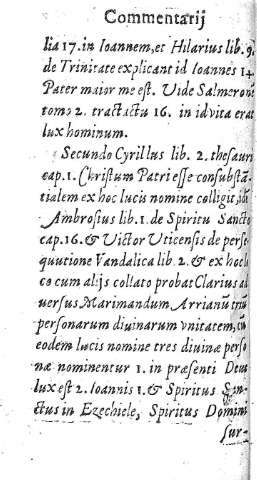 Commentarij
lia 17. in Ioannem, et Hilarius lib. 9.
de Trinitate explicant id Ioannes 14
Pater maior me est. Vide Salmeron
tomo 2. tractactu 16. in id vita erat
lux hominum.
Secundo Cyrillus lib. 2. thesauri
cap. 1. Christum Patri esse consubstã
tialem ex hoc lucis nomine colligit,
Ambrosius lib. 1. de Spiritu Sancto
cap. 16. & Victor Uticensis de perse
quutione Vandalica lib. 2. & ex hoc lo
co cum alijs collato probat Clarius ad
uersus Marimandum Arrianũ triũ
personarum diuinarum vnitatem, cũ
eodem lucis nomine tres diuinæ perso
næ nominentur 1. in præsenti Deus
lux est 2. Ioannis 1. & Spiritus San-
ctus in Ezechiele, Spiritus Domini
sur-